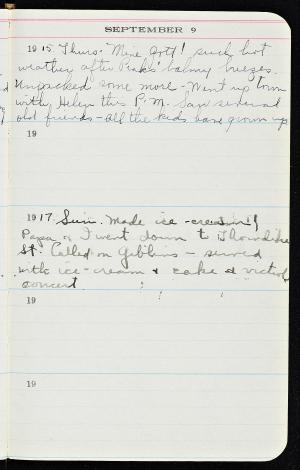 SEPTEMBER 9
1915 Thurs. Mine Gott! such hot
weather after Pink's balmy breezes.
Unpacked some more - Went up town
with Helen this P.M. Saw several
old friends - All the kids have grown up
19
1917. Sun. Made ice-cream!
Papa & I went down to
St. Called on Gibbins - served
with ice-cream & cake & victrola
concert
19
19